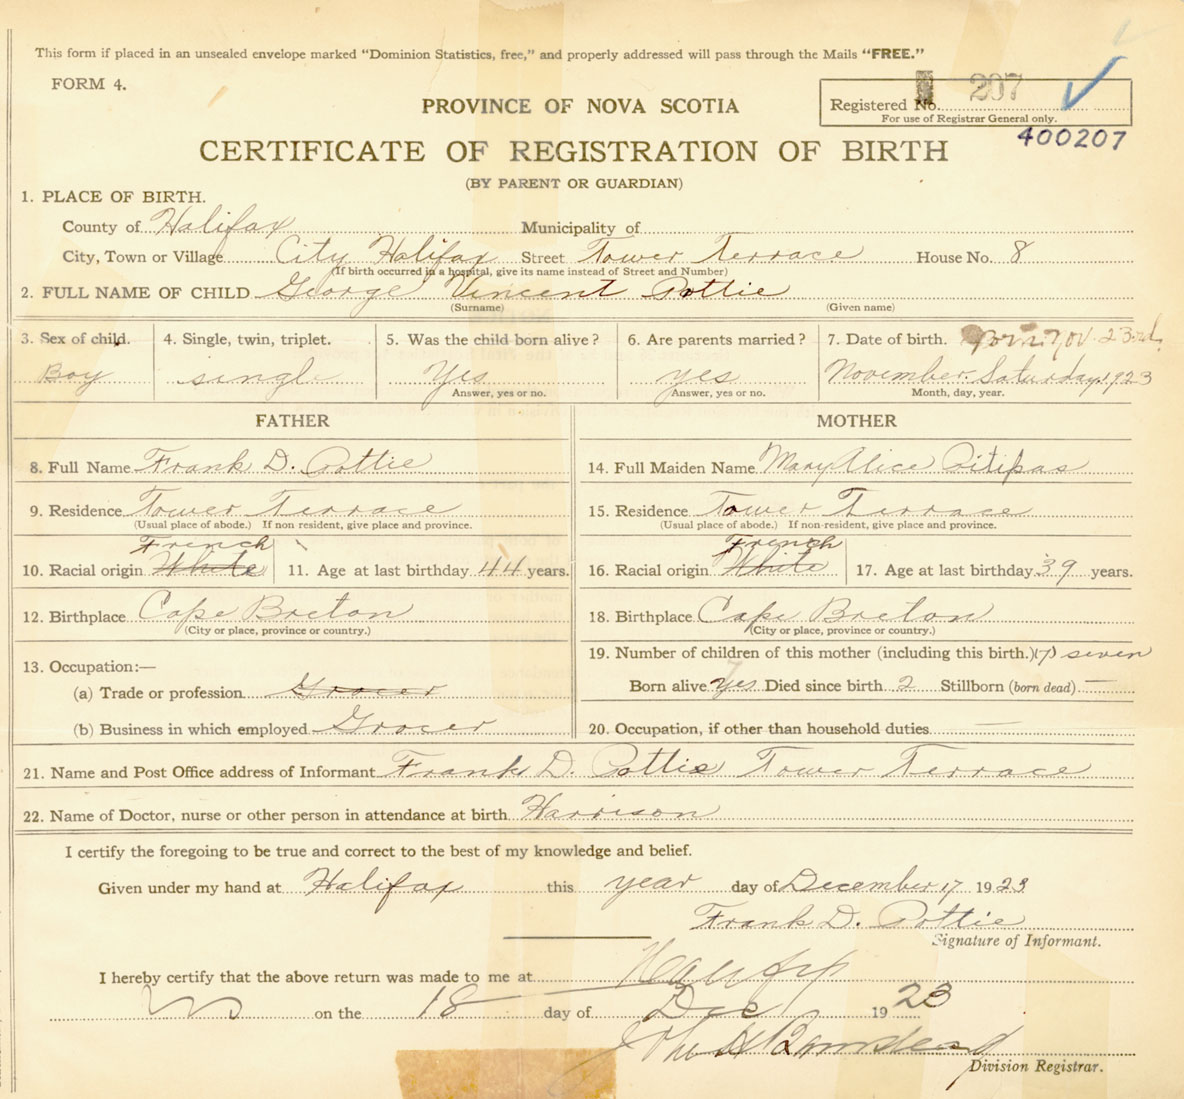 This form if placed in an unsealed envelope marked "Dominion Statistics, free," and properly addressed will pass through the Mails "FREE."
FORM 4.
Registered No. 207
For use of Registrar General only.
400207
PROVINCE OF NOVA SCOTIA
CERTIFICATE OF REGISTRATION OF BIRTH
(BY PARENT OR GUARDIAN)
1. PLACE OF BIRTH.
County of Halifax Municipality of
City, Town or Village City Halifax Street Tower Terrace House No. 8
(If birth occurred in a hospital, give its name instead of Street and Number)
2. FULL NAME OF CHILD George Vincent Pottie
(Surname) (Given name)
3. Sex of child. 4. Single, twin, triplet. 5. Was the child born alive? 6. Are parents married? 7. Date of birth. Born Nov. 23rd.
Boy single Yes yes November Saturday 1923
Answer, yes or no. Answer, yes or no. Month, day, year.
FATHER MOTHER
8. Full Name Frank D. Pottie 14. Full Maiden Name Mary Alice Pitipas
9. Residence Tower Terrace 15. Residence Tower Terrace
(Usual place of abode.) If non resident, give place and province. (Usual place of abode.) If non-resident, give place and province.
French French
10. Racial origin White 11. Age at last birthday 44 years. 16. Racial origin White 17. Age at last birthday 39 years.
12. Birthplace Cape Breton 18. Birthplace Cape Breton
(City or place, province or country.) (City or place, province or country.)
13. Occupation:— 19. Number of children of this mother (including this birth.) (7) seven
(a) Trade or profession Grocer Born alive Yes 7 Died since birth 2 Stillborn (born dead) —
(b) Business in which employed Grocer 20. Occupation, if other than household duties —
21. Name and Post Office address of Informant Frank D. Pottie Tower Terrace
22. Name of Doctor, nurse or other person in attendance at birth Harrison
I certify the foregoing to be true and correct to the best of my knowledge and belief.
Given under my hand at Halifax this year day of December 17 1923
Frank D. Pottie
Signature of Informant.
I hereby certify that the above return was made to me at Halifax
on the 18 day of Dec 1923
Division Registrar.